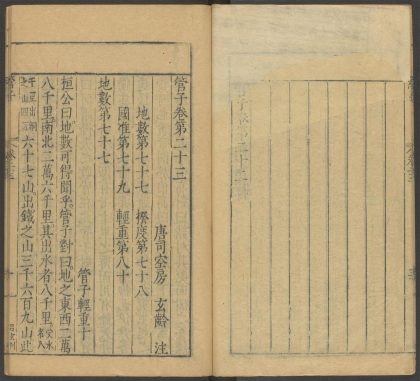 管子卷第二十三
唐司空房 玄齡 注
地數第七十七 揆度第七十八
國准第七十九 輕重第八十
地數第七十七
管子輕重十
桓公曰地數可得聞乎管子對曰地之東西二萬
八千里南北二萬六千里其出水者八千里受水者八
千里出銅之山四百六十七山出鐵之山三千六百九山此